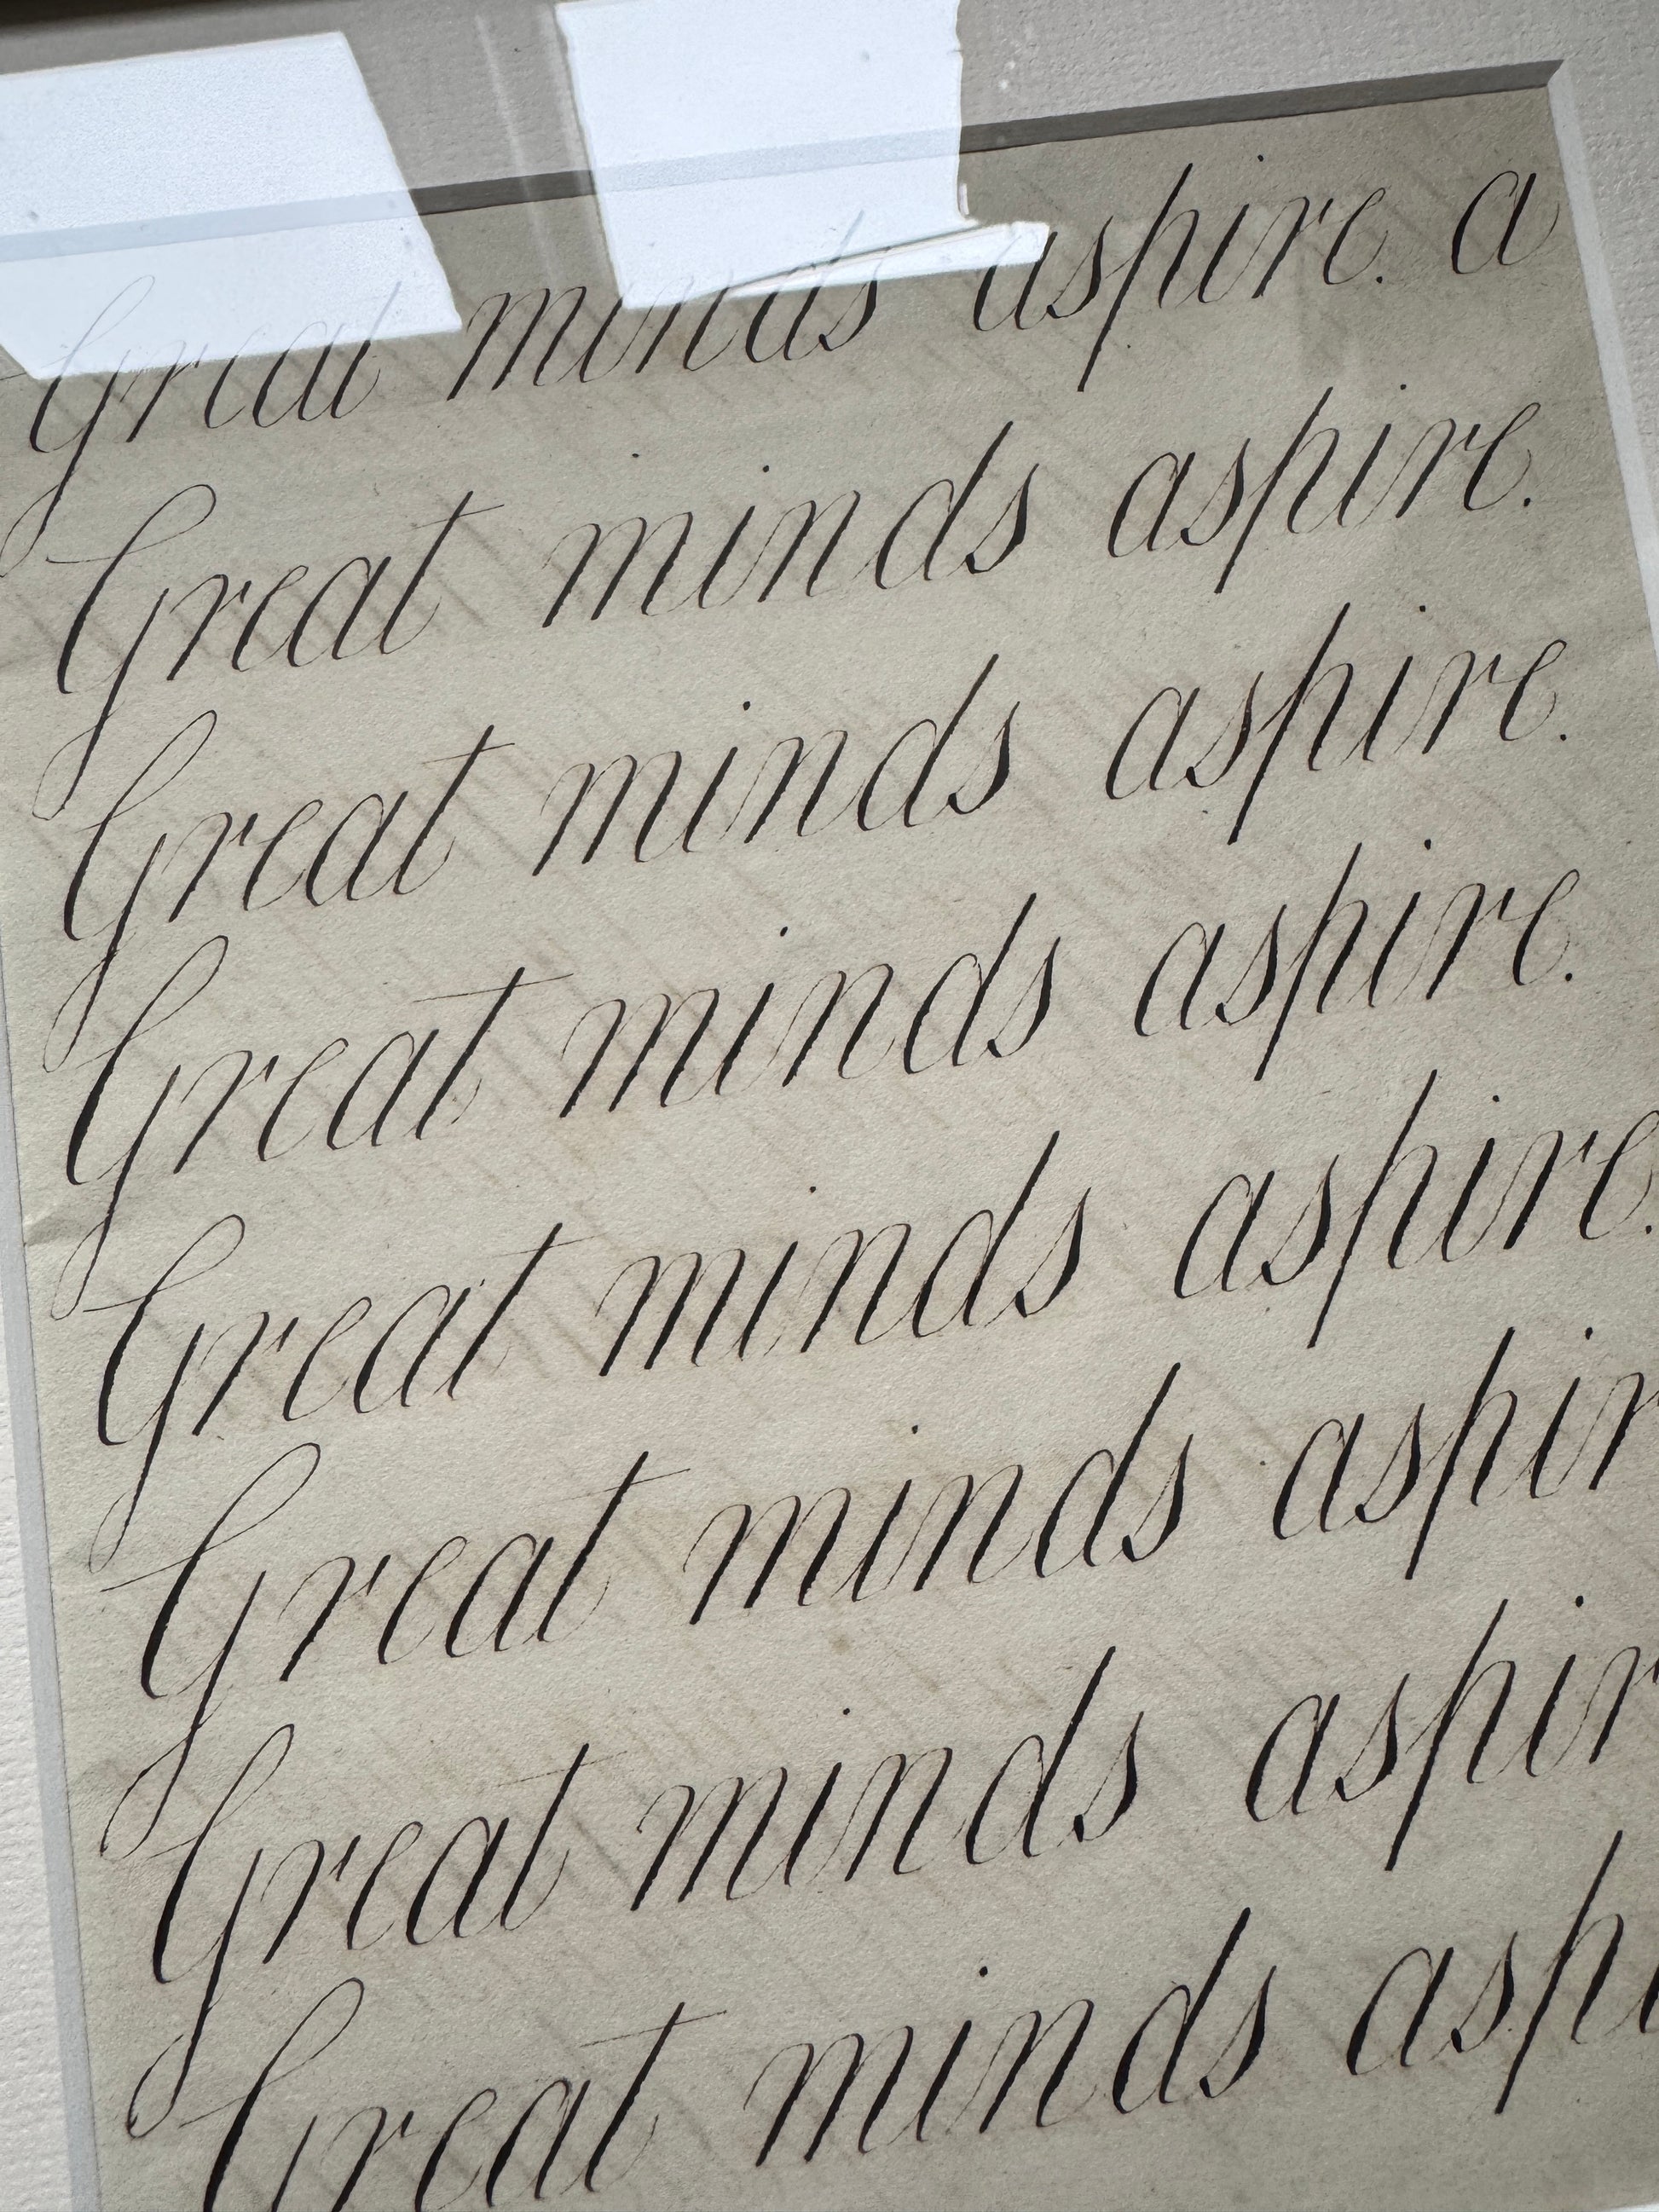 Great minds aspire. a
Great minds aspire.
Great minds aspire.
Great minds aspire.
Great minds aspire.
Great minds aspir
Great minds aspir
Great minds aspi